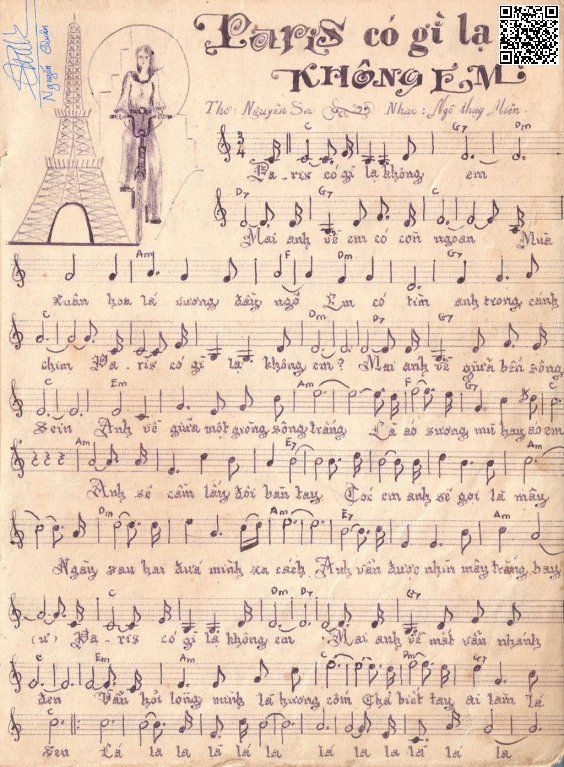 Nguyễn Quân
Paris có gì lạ
KHÔNG EM
Thơ: Nguyên Sa Nhạc: Ngô Thụy Miên.
C G7 Dm
3
4
Pa-ris có gì lạ không em
D7 G7 C
Mai anh về em có còn ngoan Mùa
Am F Dm G7
xuân hoa lá vương đầy ngõ Em có tìm anh trong cánh
C Dm G7
chim Pa-ris có gì lạ không em? Mai anh về giữa bến sông
C Em Am F G7
Sein Anh về giữa một giòng sông trắng Là áo sương mù hay áo em
Am E7 Am
Anh sẽ cầm lấy đôi bàn tay Tóc em anh sẽ gọi là mây
Dm Am E7 Am
Ngày sau hai đứa mình xa cách Anh vẫn được nhìn mây trắng bay
C Dm D7 G7
(ư) Pa-ris có gì lạ không em Mai anh về mắt vẫn nhánh
C Em Am Dm G7
đen Vẫn hỏi lòng mình là hương cốm Chả biết tay ai làm lá
C
sen Lá la la la la la la la la la la la